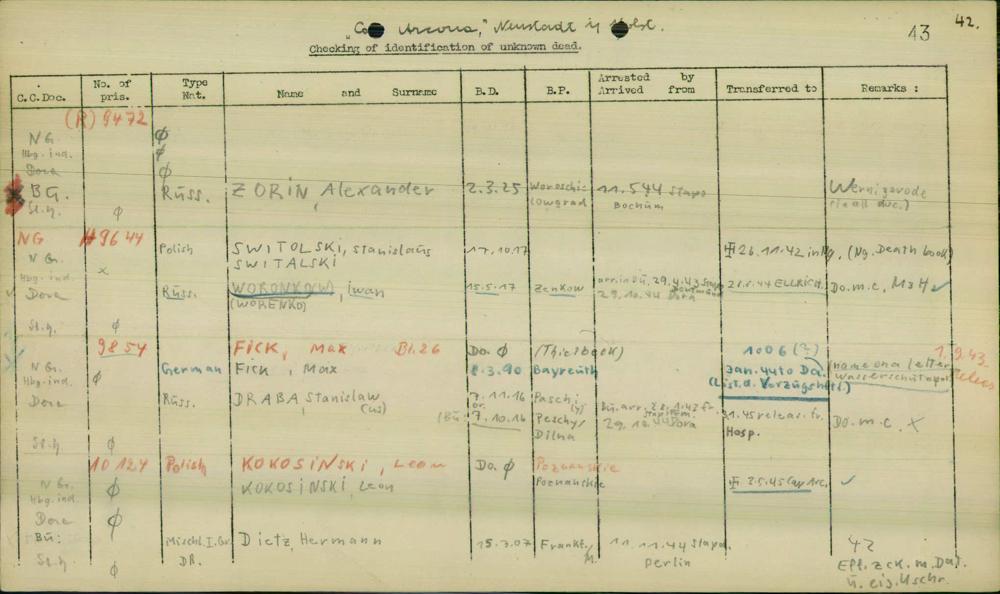 "Ca Arcona," Neustadt i/ Holst.
43
42.
Checking of identification of unknown dead.
C.C.Doc.
No. of pris.
Type Nat.
Name and Surname
B.D.
B.P.
Arrested by
Arrived from
Transferred to
Remarks :
(R) 9472
N G. ϕ
Hbg. ind. ϕ
Dora ϕ
BG. Russ. ZORIN, Alexander 2.3.25 Woroschi- 11.5.44 Stapo Wernigerode
lowgrad Bochum (in all doc.)
St.h. ϕ
NG 9644
N Gr. Polish SWITOLSKI, Stanislaus 17.10.17 26.11.42 in Ng. (Ng. Death book)
SWITALSKI
Hbg. ind. x
Dora Russ. WORONKO(W), Iwan 15.5.17 Zenkow 29.4.43 Stapo 21.5.44 ELLRICH. Do.m.c. M z H
(WORENKO) 29.10.44 Dora
St.h. ϕ
9854 FICK, Max Bl.26 Do. ϕ (Thielbeck) 1006 (?) 1.9.43.
N Gr. German Fick, Max 8.3.90 Bayreuth Jan. 44 to Da. (name on a letter
Hbg. ind. ϕ (List. d. Vorzugshäftl.) Wasserschutzpol.
Dora Russ. DRABA, Stanislaw 7.11.16 Paschi-
(us) or.
(Bu: 7.10.16 Peschy/ 29.10.44 Dora Do.m.c. X
Dilna Hosp.
St.h ϕ
10124 Polish KOKOSINSKI, Leon Do. ϕ Poznanskie
N Gr. ϕ KOKOSINSKI, Leon Poznanskie 3.5.45 Cap Arc.
Hbg. ind.
Dora ϕ
Bu: Mischl. I. Gr. Dietz, Hermann 15.3.07 Frankf./ 11.11.44 Stapo. 42
DR. M. Berlin Eff. z ck. m. Dat.
St.h. ϕ u. eig. Uschr.